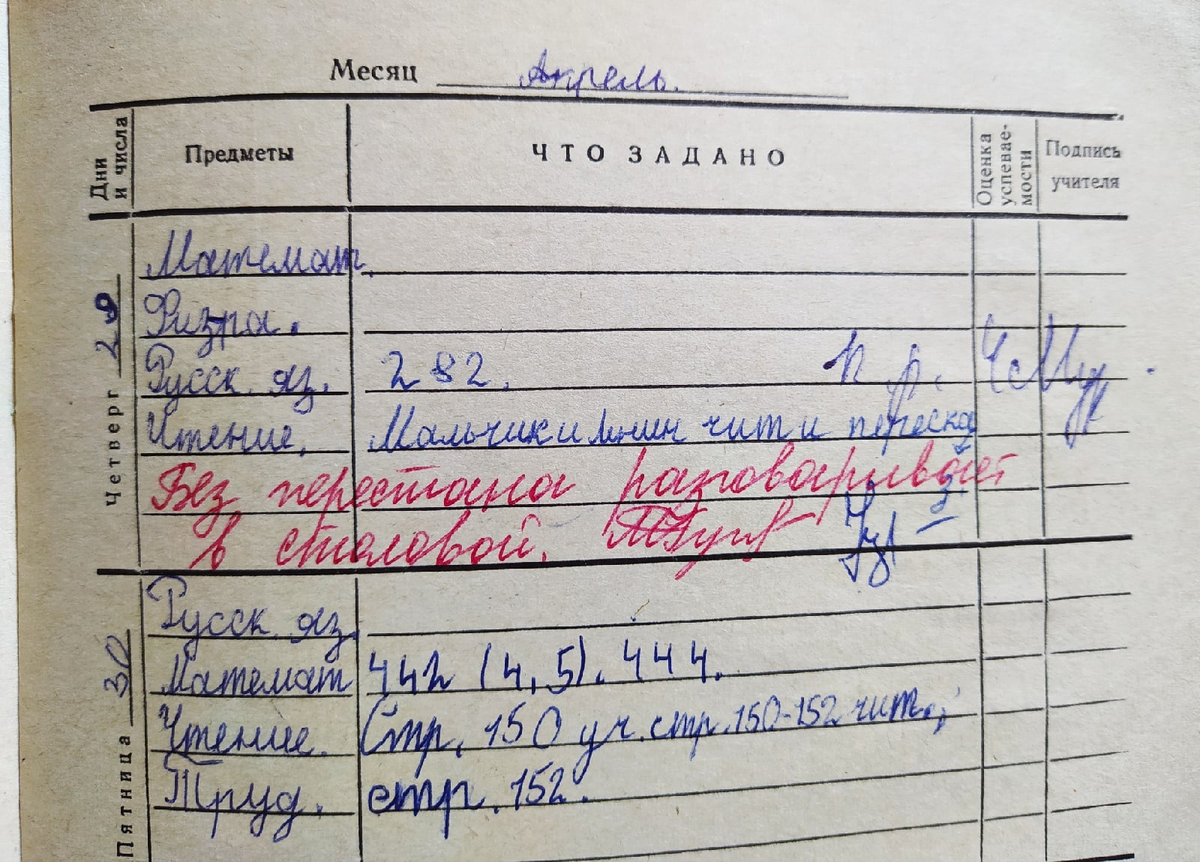 Месяц Апрель.
Дни и числа Предметы ЧТО ЗАДАНО Оценка успеваемости Подпись учителя
Четверг 29
Математ.
Физра.
Русск. яз. 282. п р.
Чтение. Мальчик и Ленин чит и переска
Без перестана разговаривает
в столовой.
Пятница 30
Русск. яз.
Математ 442 (4,5). 444.
Чтение. Стр. 150 уч. стр. 150-152 чит.,
Труд. стр. 152.